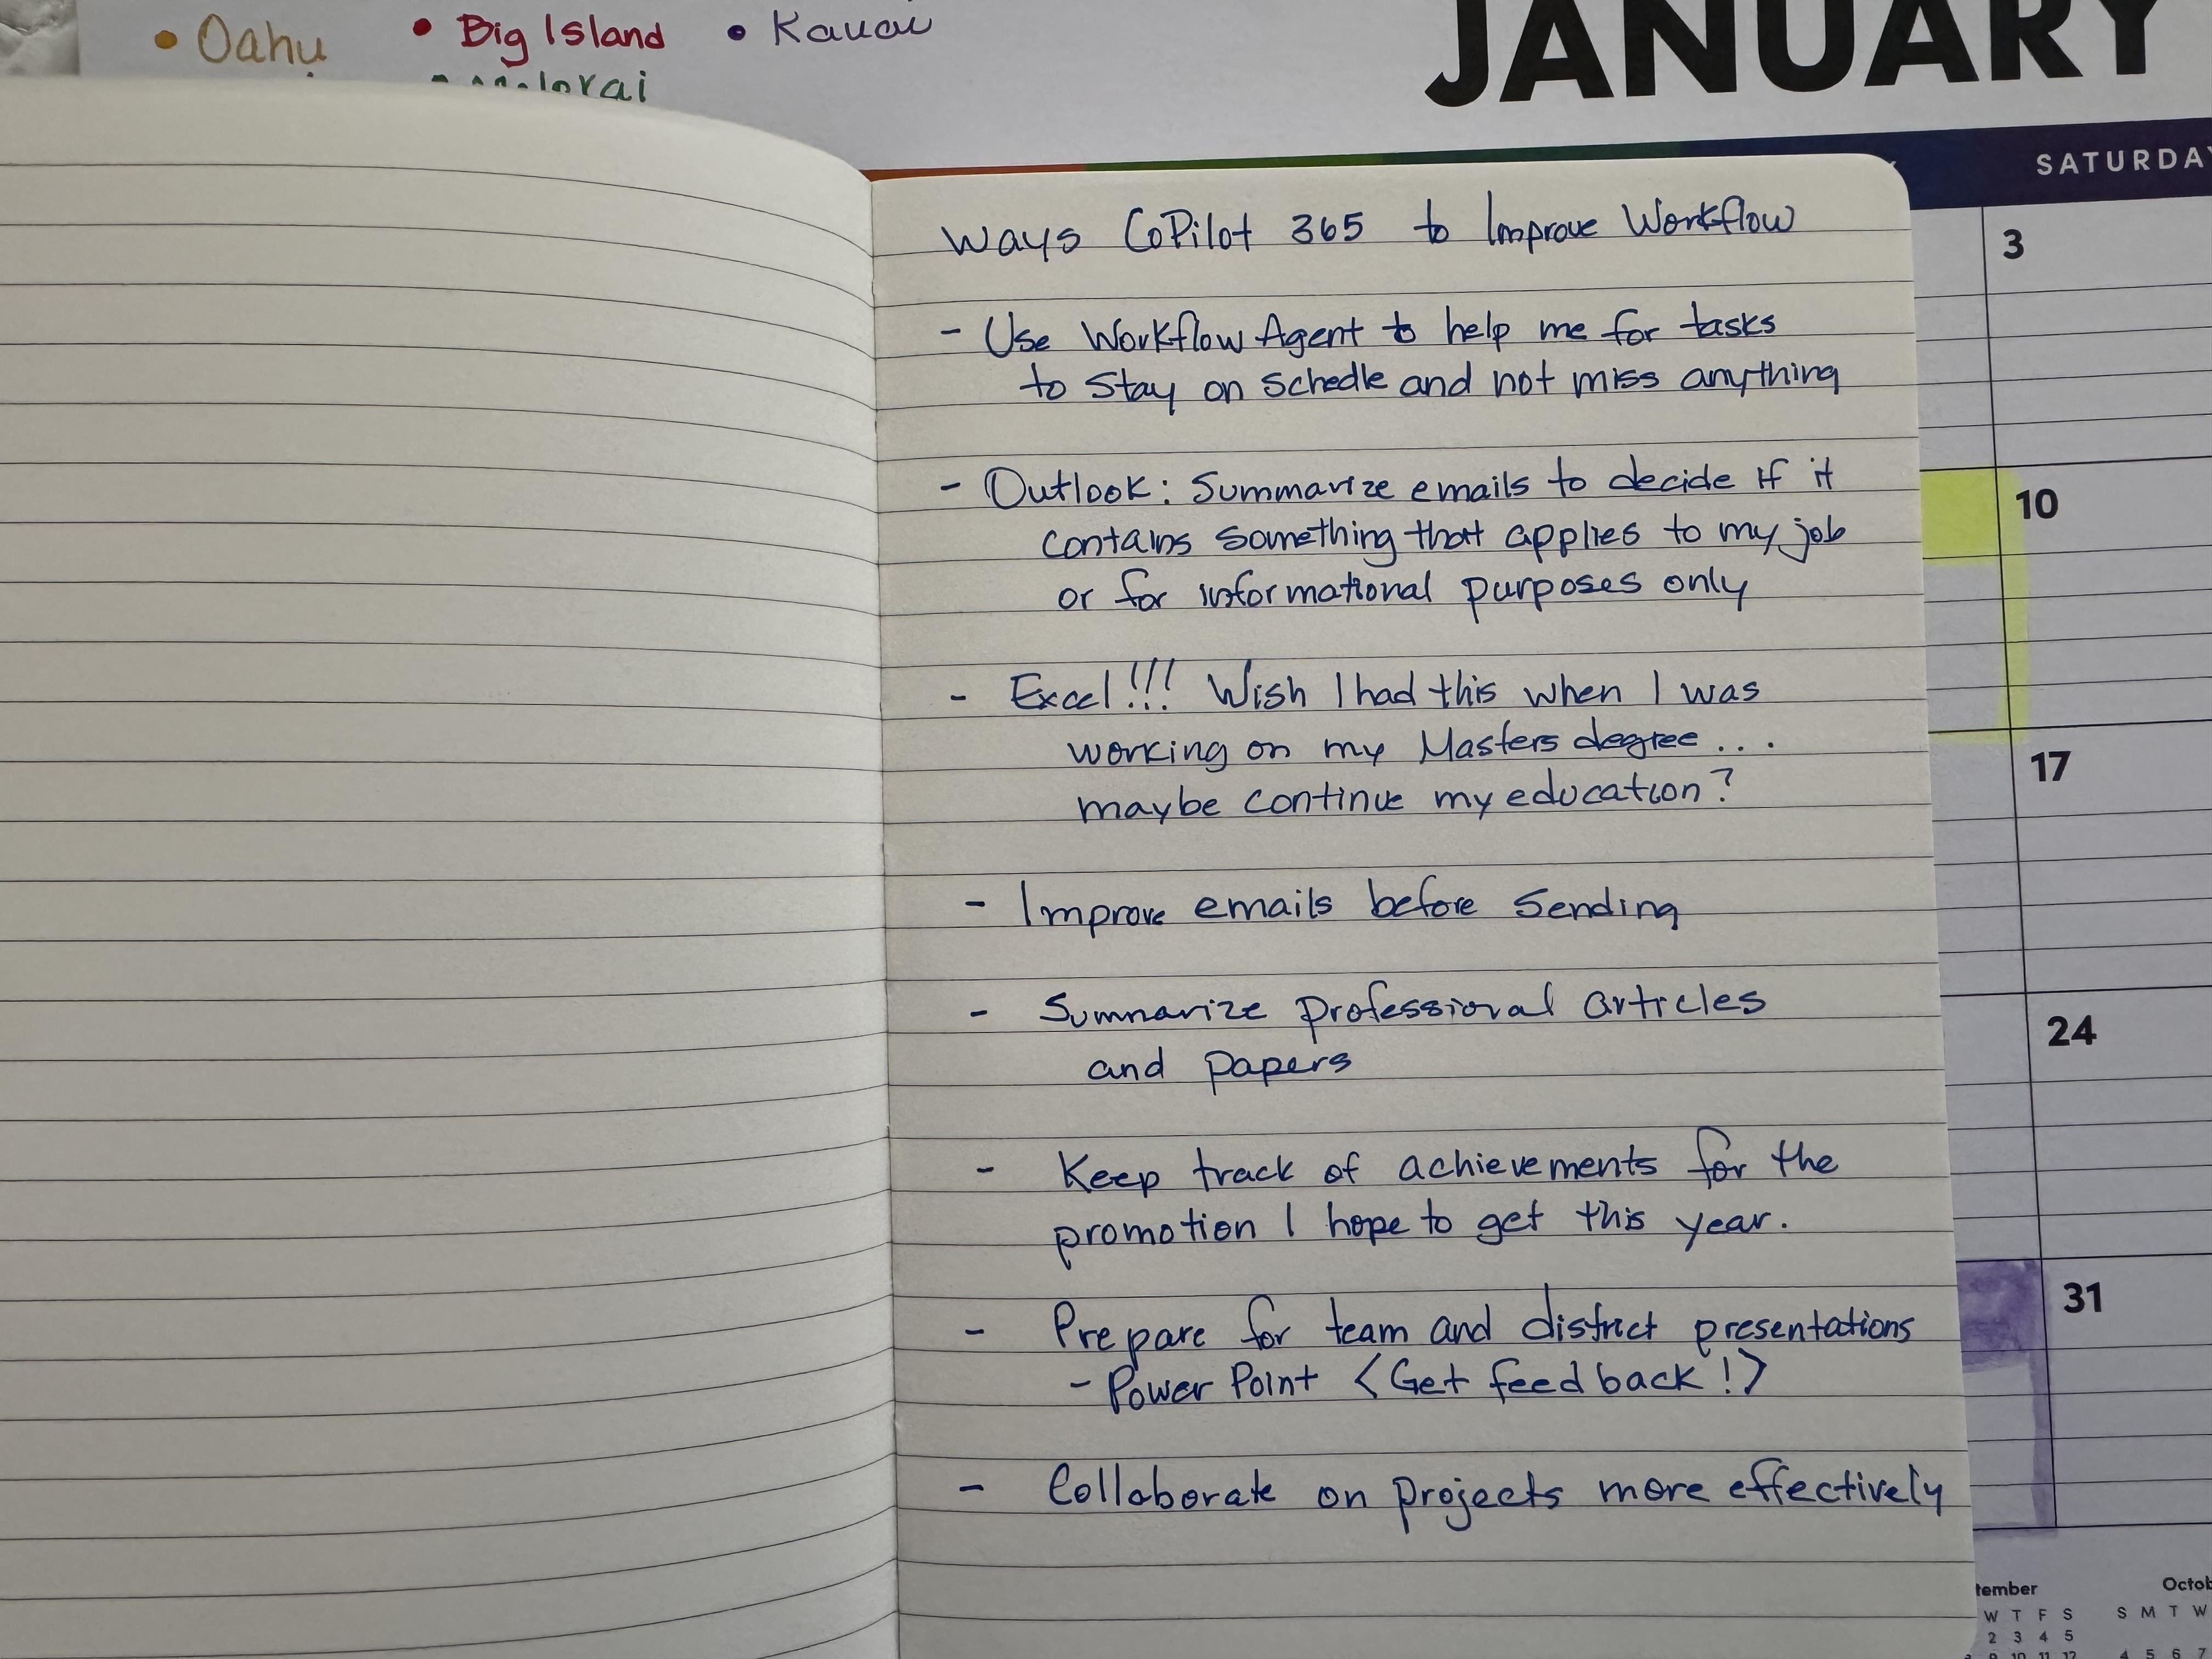 • Oahu • Big Island • Kauai
JANUARY
SATURDAY
3
10
17
24
31
Ways CoPilot 365 to Improve Workflow
- Use Workflow Agent to help me for tasks
to stay on schedle and not miss anything
- Outlook: Summarize emails to decide if it
contains something that applies to my job
or for informational purposes only
- Excel!!! Wish I had this when I was
working on my Masters degree ....
maybe continue my education?
- Improve emails before sending
- Summarize professional articles
and papers
- Keep track of achievements for the
promotion I hope to get this year.
- Prepare for team and district presentations
- Power Point <Get feedback!>
- Collaborate on projects more effectively
tember Octob
W T F S S M T W
2 3 4 5